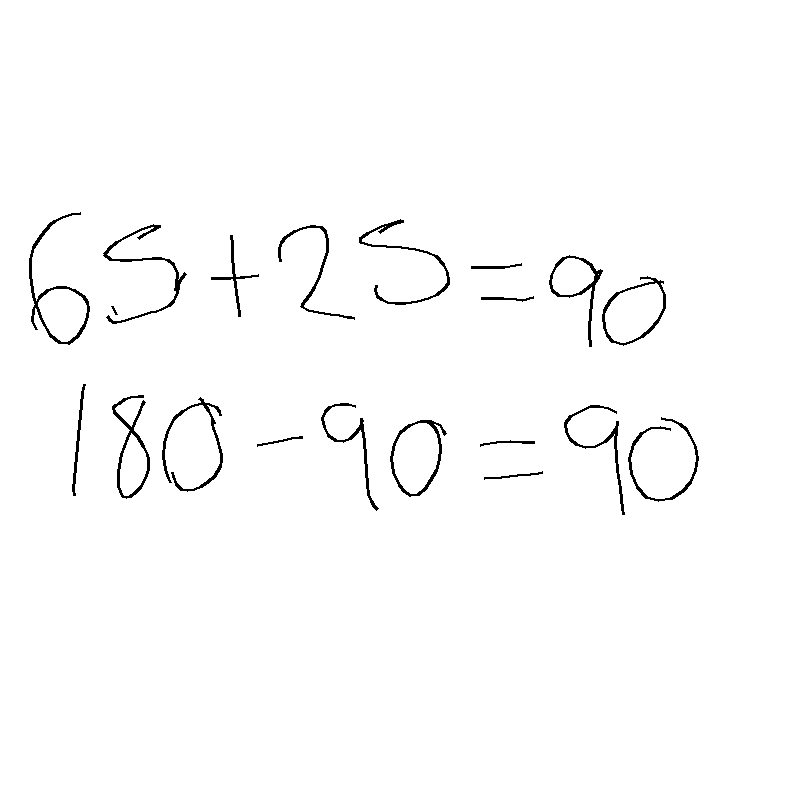 65+25=90
180-90=90